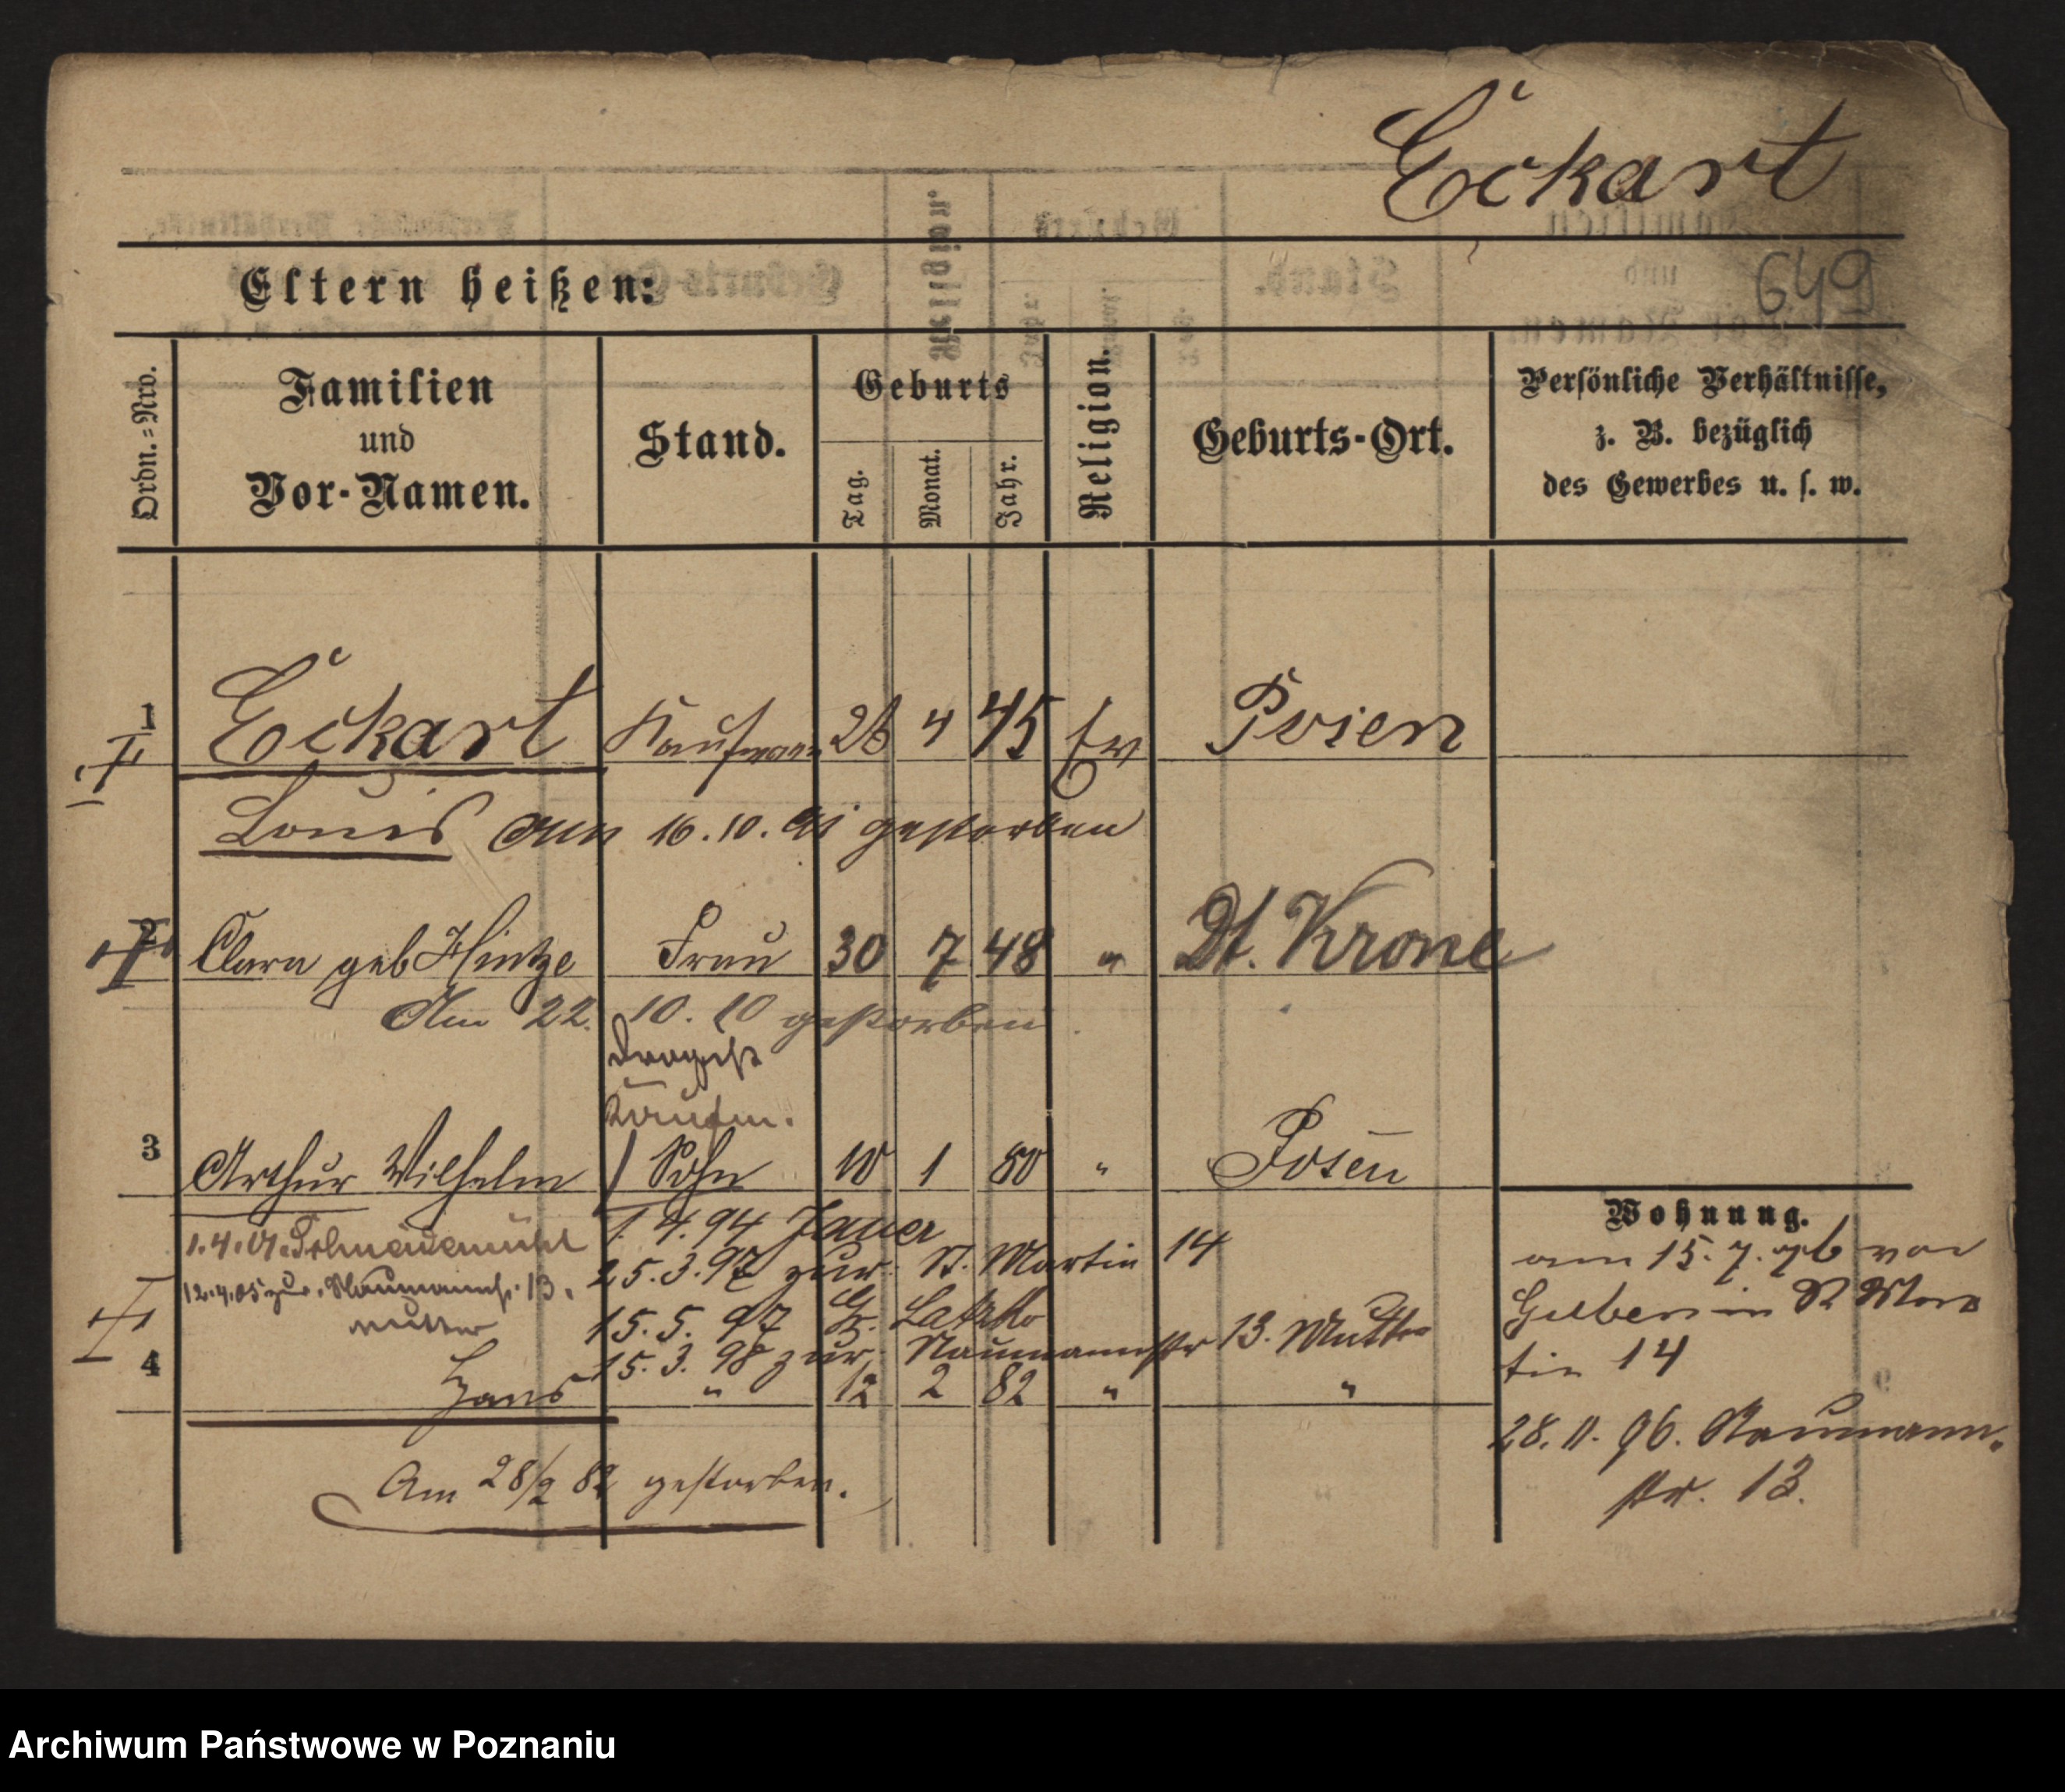 Eckart
649
Eltern heißen:
Ordn.=Nro.
Familien
und
Vor-Namen.
Stand.
Geburts
Tag.
Monat.
Jahr.
Religion.
Geburts-Ort.
Persönliche Verhältnisse,
z. B. bezüglich
des Gewerbes u. s. w.
1 Eckart Kaufmann 26 4 45 Ev Posen
Louis am 16. 10. gestorben
2 Clara geb Hintze Frau 30 7 48 " Dt. Krone
Am 22. 10. 10 gestorben
Drogist
Kaufm.
3 Arthur Wilhelm / Sohn 10 1 80 " Posen
1. 4. 94 Jauer
1. 4. 01. Schneidemühl
25. 3. 97 zur. St. Martin 14
12. 4. 05 zur. Naumannstr. 13.
Mutter
15. 5. 97 Latzko
15. 3. 98 zur. Naumannstr 13. Mutter
4 Hans " 12 2 82 " "
Am 28/2 82 gestorben.
Wohnung.
am 15. 7. 76 von
in St Mar
tin 14
28. 11. 96. Naumann-
str. 13.
Archiwum Państwowe w Poznaniu